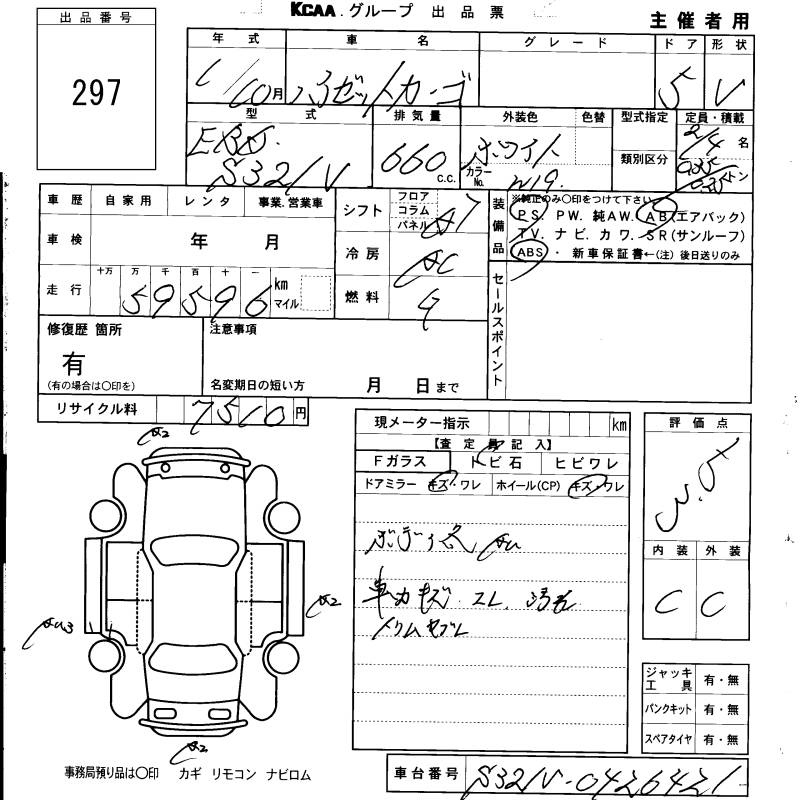 KCAA.グループ 出品票
主催者用
出品番号
297
年式 車名 グレード ドア 形状
/10月 ハイゼットカーゴ 5 V
型式 排気量 外装色 色替 型式指定 定員・積載
EBD.
S321V 660 c.c. ホワイト カラーNo. W19. 類別区分 2/4 名 トン
車歴 自家用 レンタ 事業.営業車
車検 年 月
走行 十万 万 千 百 十 一 km マイル
59596
シフト フロア コラム パネル A7
冷房 AC
燃料
装備品
※純正のみ○印をつけて下さい
PS. PW. 純AW. AB(エアバック)
TV. ナビ. カワ. SR(サンルーフ)
ABS ・ 新車保証書←(注)後日送りのみ
セールスポイント
修復歴 箇所
有
(有の場合は○印を)
注意事項
名変期日の短い方 月 日まで
リサイクル料 7510 円
現メーター指示 km
【査定員記入】
Fガラス トビ石 ヒビワレ
ドアミラー キズ・ワレ ホイール(CP) キズ・ワレ
評価点
3.5
内装 外装
C C
A2
A2
A2
ジャッキ工具 有・無
パンクキット 有・無
スペアタイヤ 有・無
事務局預り品は○印 カギ リモコン ナビロム
車台番号 S321V-0426421